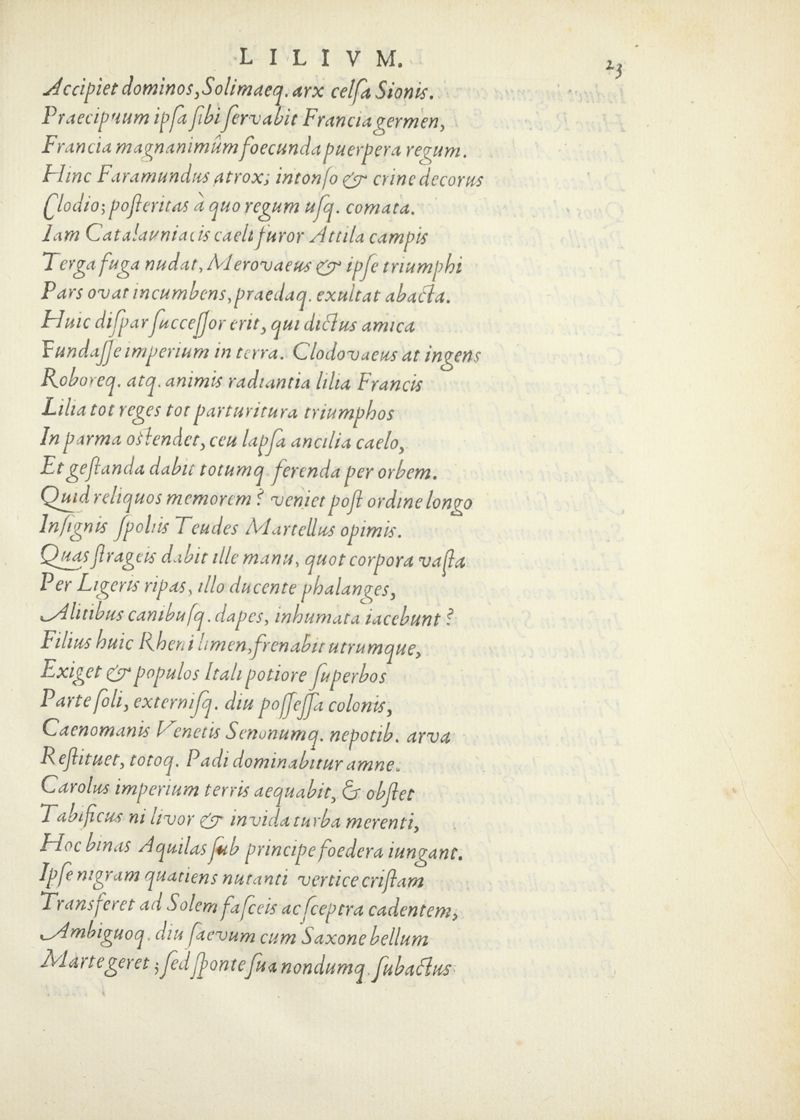 LILIVM.
23
Accipiet dominos, Solimaeq. arx celſa Sionis.
Praecipuum ipſa ſibi ſervabit Francia germen,
Francia magnanimûm foecunda puerpera regum.
Hinc Faramundus atrox; intonſo & crine decorus
Clodio; poſteritas à quo regum uſq. comata.
Iam Catalauniacis caeli furor Attila campis
Terga fuga nudat, Merovaeus & ipſe triumphi
Pars ovat incumbens, praedaq. exultat abacta.
Huic diſpar ſucceſſor erit, qui dictus amica
Fundaſſe imperium in terra. Clodovaeus at ingens
Roboreq. atq. animis radiantia lilia Francis
Lilia tot reges tot parturitura triumphos
In parma oſtendet, ceu lapſa ancilia caelo,
Et geſtanda dabit totumq. ferenda per orbem.
Quid reliquos memorem? veniet poſt ordine longo
Inſignis ſpoliis Teudes Martellus opimis.
Quas ſtrageis dabit ille manu, quot corpora vaſta
Per Ligeris ripas, illo ducente phalanges,
Alitibus canibuſq. dapes, inhumata iacebunt?
Filius huic Rheni limen, frenabit utrumque,
Exiget & populos Itali potiore ſuperbos
Parte ſoli, externiſq. diu poſſeſſa colonis,
Caenomanis Venetis Senonumq. nepotib. arva
Reſtituet, totoq. Padi dominabitur amne.
Carolus imperium terris aequabit, & obſtet
Tabificus ni livor & invida turba merenti,
Hoc binas Aquilas ſub principe foedera iungant.
Ipſe nigram quatiens nutanti vertice criſtam
Transferet ad Solem faſceis ac ſceptra cadentem,
Ambiguoq. diu ſaevum cum Saxone bellum
Marte geret; ſed ſponte ſua nondumq. ſubactus